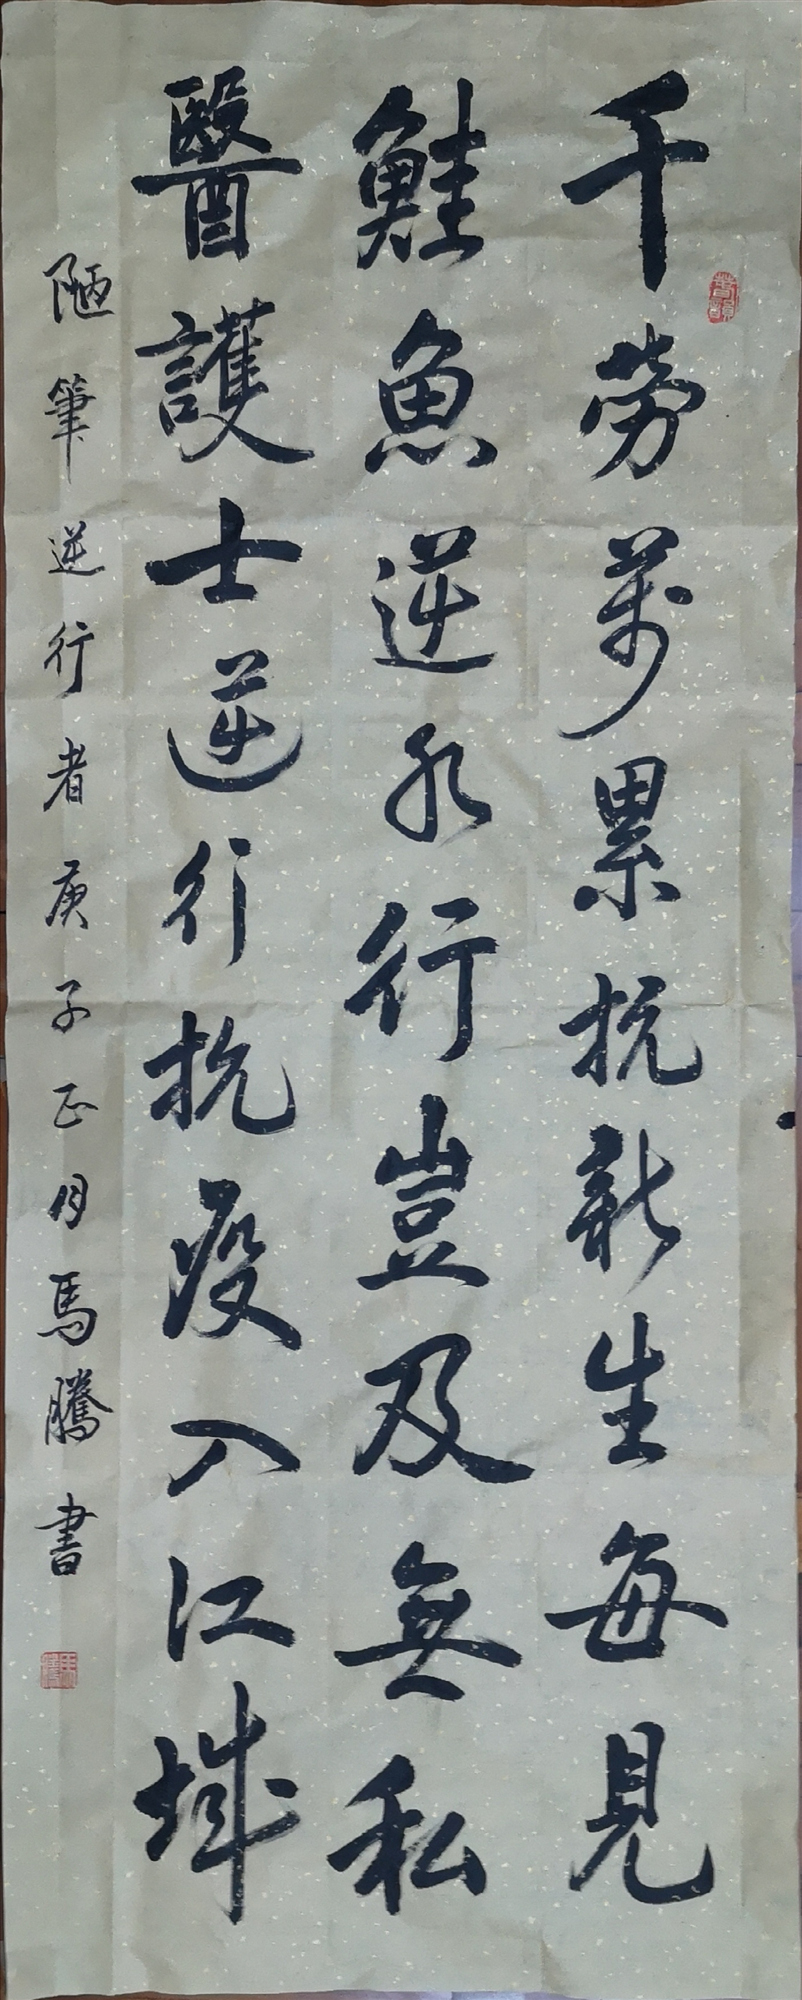 千勞萬累抗新生每見
鮭魚逆水行豈及無私
醫護士逆行抗疫入江城
陋筆逆行者庚子正月馬騰書